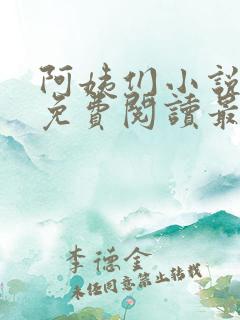 阿姨们小説
免費閱讀最
李德金
未经同意禁止转载